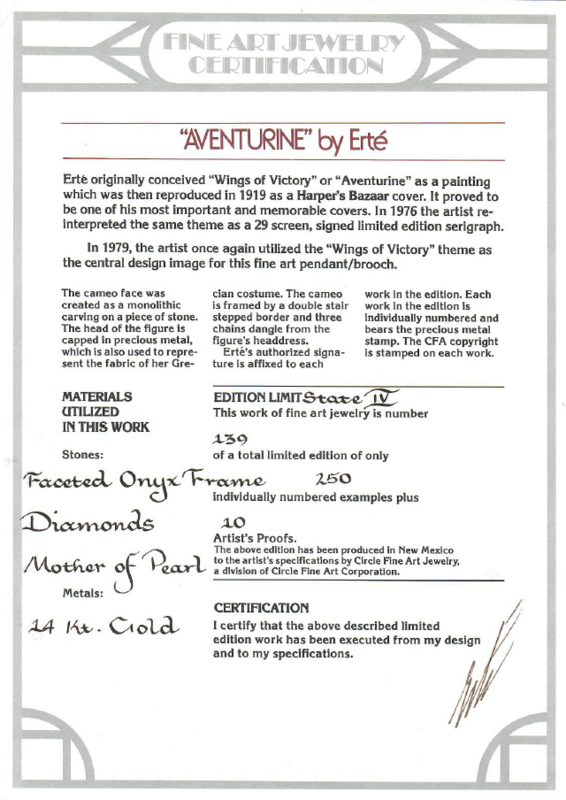 FINE ART JEWELRY
CERTIFICATION
"AVENTURINE" by Erté
Ertè originally conceived "Wings of Victory" or "Aventurine" as a painting
which was then reproduced in 1919 as a Harper's Bazaar cover. It proved to
be one of his most important and memorable covers. In 1976 the artist re-
interpreted the same theme as a 29 screen, signed limited edition serigraph.
In 1979, the artist once again utilized the "Wings of Victory" theme as
the central design image for this fine art pendant/brooch.
The cameo face was
created as a monolithic
carving on a piece of stone.
The head of the figure is
capped in precious metal,
which is also used to repre-
sent the fabric of her Gre-
cian costume. The cameo
is framed by a double stair
stepped border and three
chains dangle from the
figure's headdress.
Erté's authorized signa-
ture is affixed to each
work in the edition. Each
work in the edition is
individually numbered and
bears the precious metal
stamp. The CFA copyright
is stamped on each work.
MATERIALS
UTILIZED
IN THIS WORK
Stones:
Faceted Onyx Frame
Diamonds
Mother of Pearl
Metals:
14 Kt. Gold
EDITION LIMIT State IV
This work of fine art jewelry is number
139
of a total limited edition of only
250
individually numbered examples plus
10
Artist's Proofs.
The above edition has been produced in New Mexico
to the artist's specifications by Circle Fine Art Jewelry,
a division of Circle Fine Art Corporation.
CERTIFICATION
I certify that the above described limited
edition work has been executed from my design
and to my specifications.